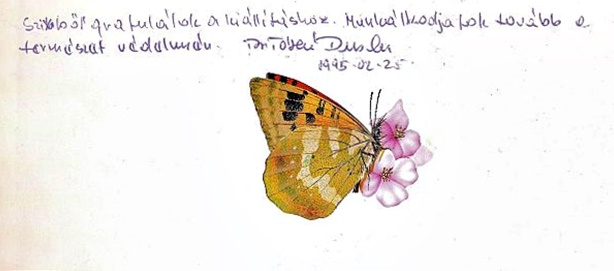 Szívből gratulálok a kiállításhoz. Munkálkodjatok tovább a
természet védelmén. Dr
1995.02.25.